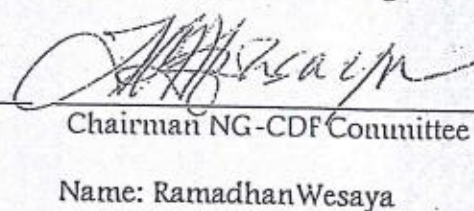 Chairman NG-CDF Committee
Name: RamadhanWesaya